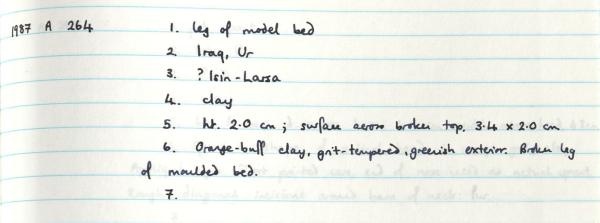 1987 A 264 1. leg of model bed
2 Iraq, Ur
3. ? Isin-Larsa
4. clay
5. ht. 2.0 cm; surface across broken top. 3.4 x 2.0 cm
6. Orange-buff clay, grit-tempered, greenish exterior. Broken leg
of moulded bed.
7.